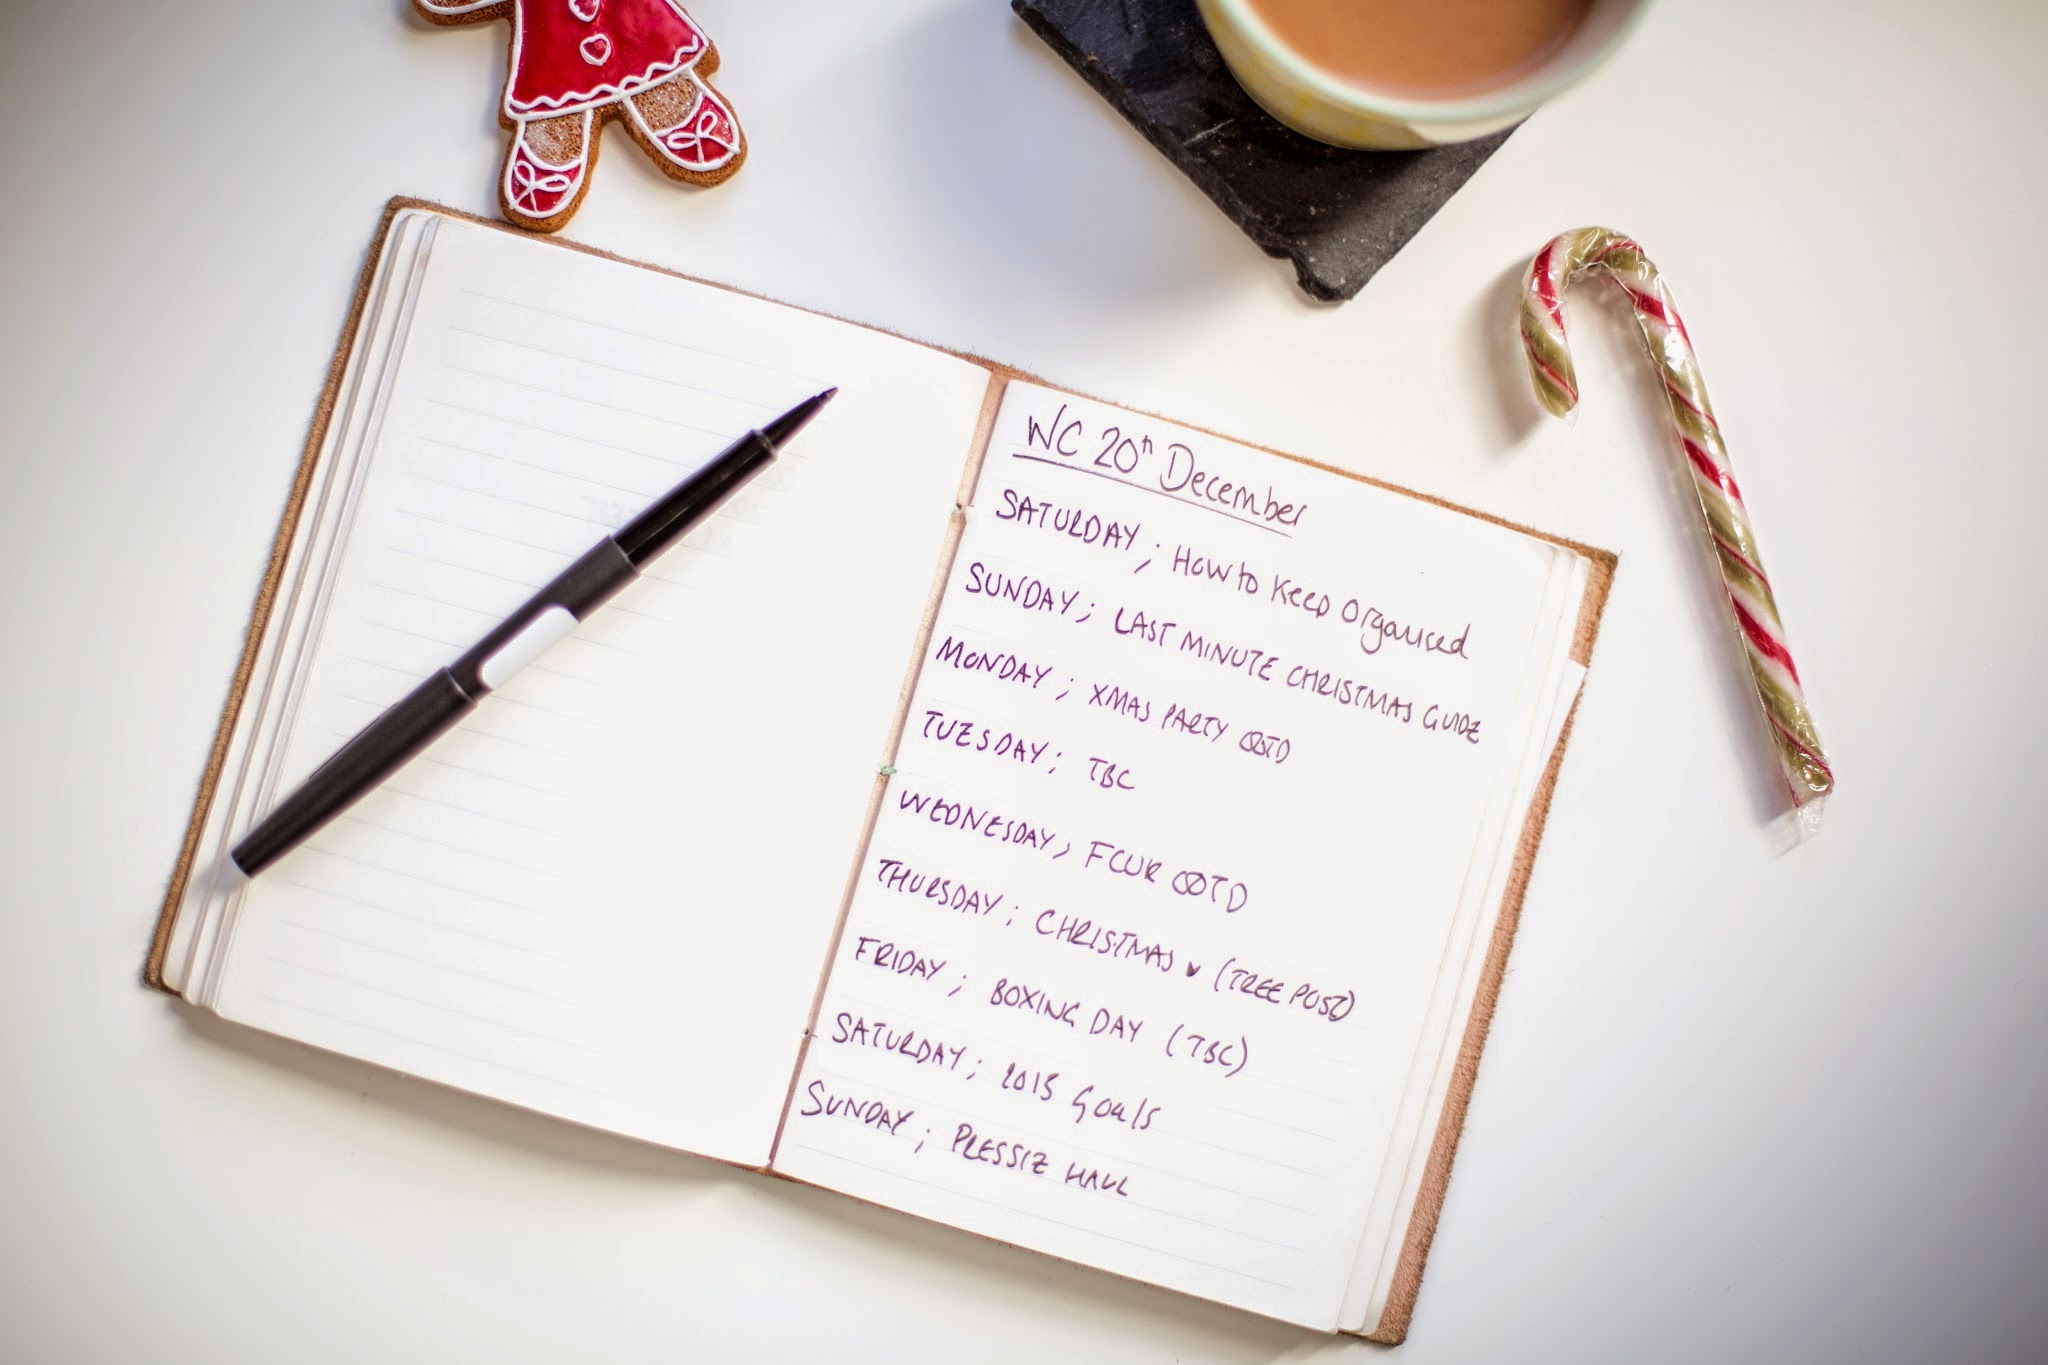 WC 20th December
SATURDAY; How to Keep Organised
SUNDAY; LAST MINUTE CHRISTMAS GUIDE
MONDAY; XMAS PARTY OOTD
TUESDAY; TBC
WEDNESDAY; FCUK OOTD
THURSDAY; CHRISTMAS (TREE POST)
FRIDAY; BOXING DAY (TBC)
SATURDAY; 2015 Goals
SUNDAY; PRESSIE HAUL